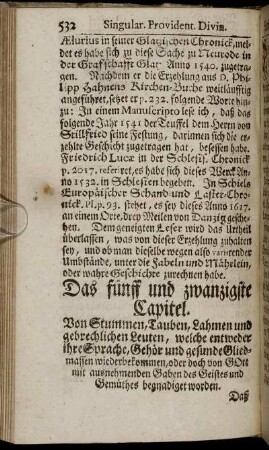 532 Singular. Provident. Divin.
Ælurius in seiner Glatzischen Chronick, mel-
det es habe sich zu diese Sache zu Neurode in
der Grafschafft Glatz Anno 1540. zugetra-
gen. Nachdem er die Erzehlung aus D. Phi-
lipp Hahnens Kirchen-Buche weitläufftig
angeführet, setzet er p. 232. folgende Worte hin-
zu: In einem Manuscripto lese ich, daß das
folgende Jahr 1541 der Teuffel dem Herrn von
Stillfried seine Festung, darinnen sich die er-
zehlte Geschicht zugetragen hat, besessen habe.
Friedrich Lucæ in der Schlesis. Chronick
p. 2017. referiret, es habe sich dieses Werck An-
no 1532. in Schlesien begeben. In Schiels
Europäischer Schand- und Laster-Chro-
nick. Pl. p. 93. stehet, es sey dieses Anno 1617.
an einem Orte, drey Meilen von Dantzig gesche-
hen. Dem geneigten Leser wird das Urtheil
überlassen, was von dieser Erzehlung zuhalten
sey, und ob man dieselbe wegen also variirender
Umbstände, unter die Fabeln und Mährlein,
oder wahre Geschichte zurechnen habe.
Das fünff und zwanzigste
Capitel.
Von Stummen, Tauben, Lahmen und
gebrechlichen Leuten, welche entweder
ihre Sprache, Gehör und gesunde Glied-
massen wiederbekommen, oder doch von GOtt
mit ausnehmenden Gaben des Geistes und
Gemüthes begnadiget worden.
Daß